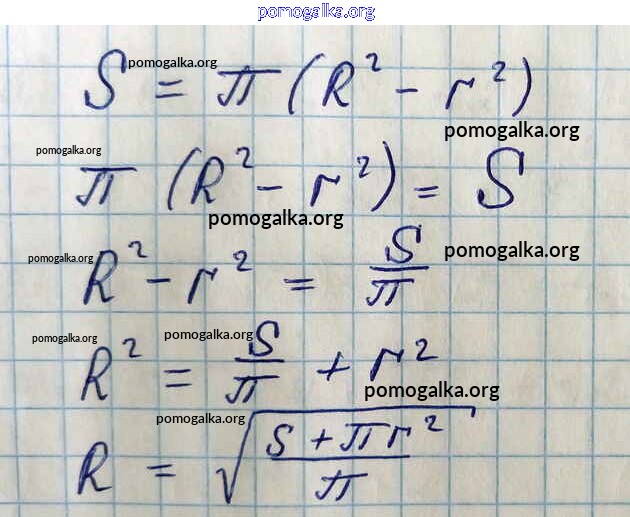 pomogalka.org
pomogalka.org
S = π (R² - r²)
pomogalka.org
pomogalka.org
π (R² - r²) = S
pomogalka.org
pomogalka.org
R² - r² = S/π
pomogalka.org
pomogalka.org
pomogalka.org
R² = S/π + r²
pomogalka.org
pomogalka.org
R = √((S + πr²)/π)